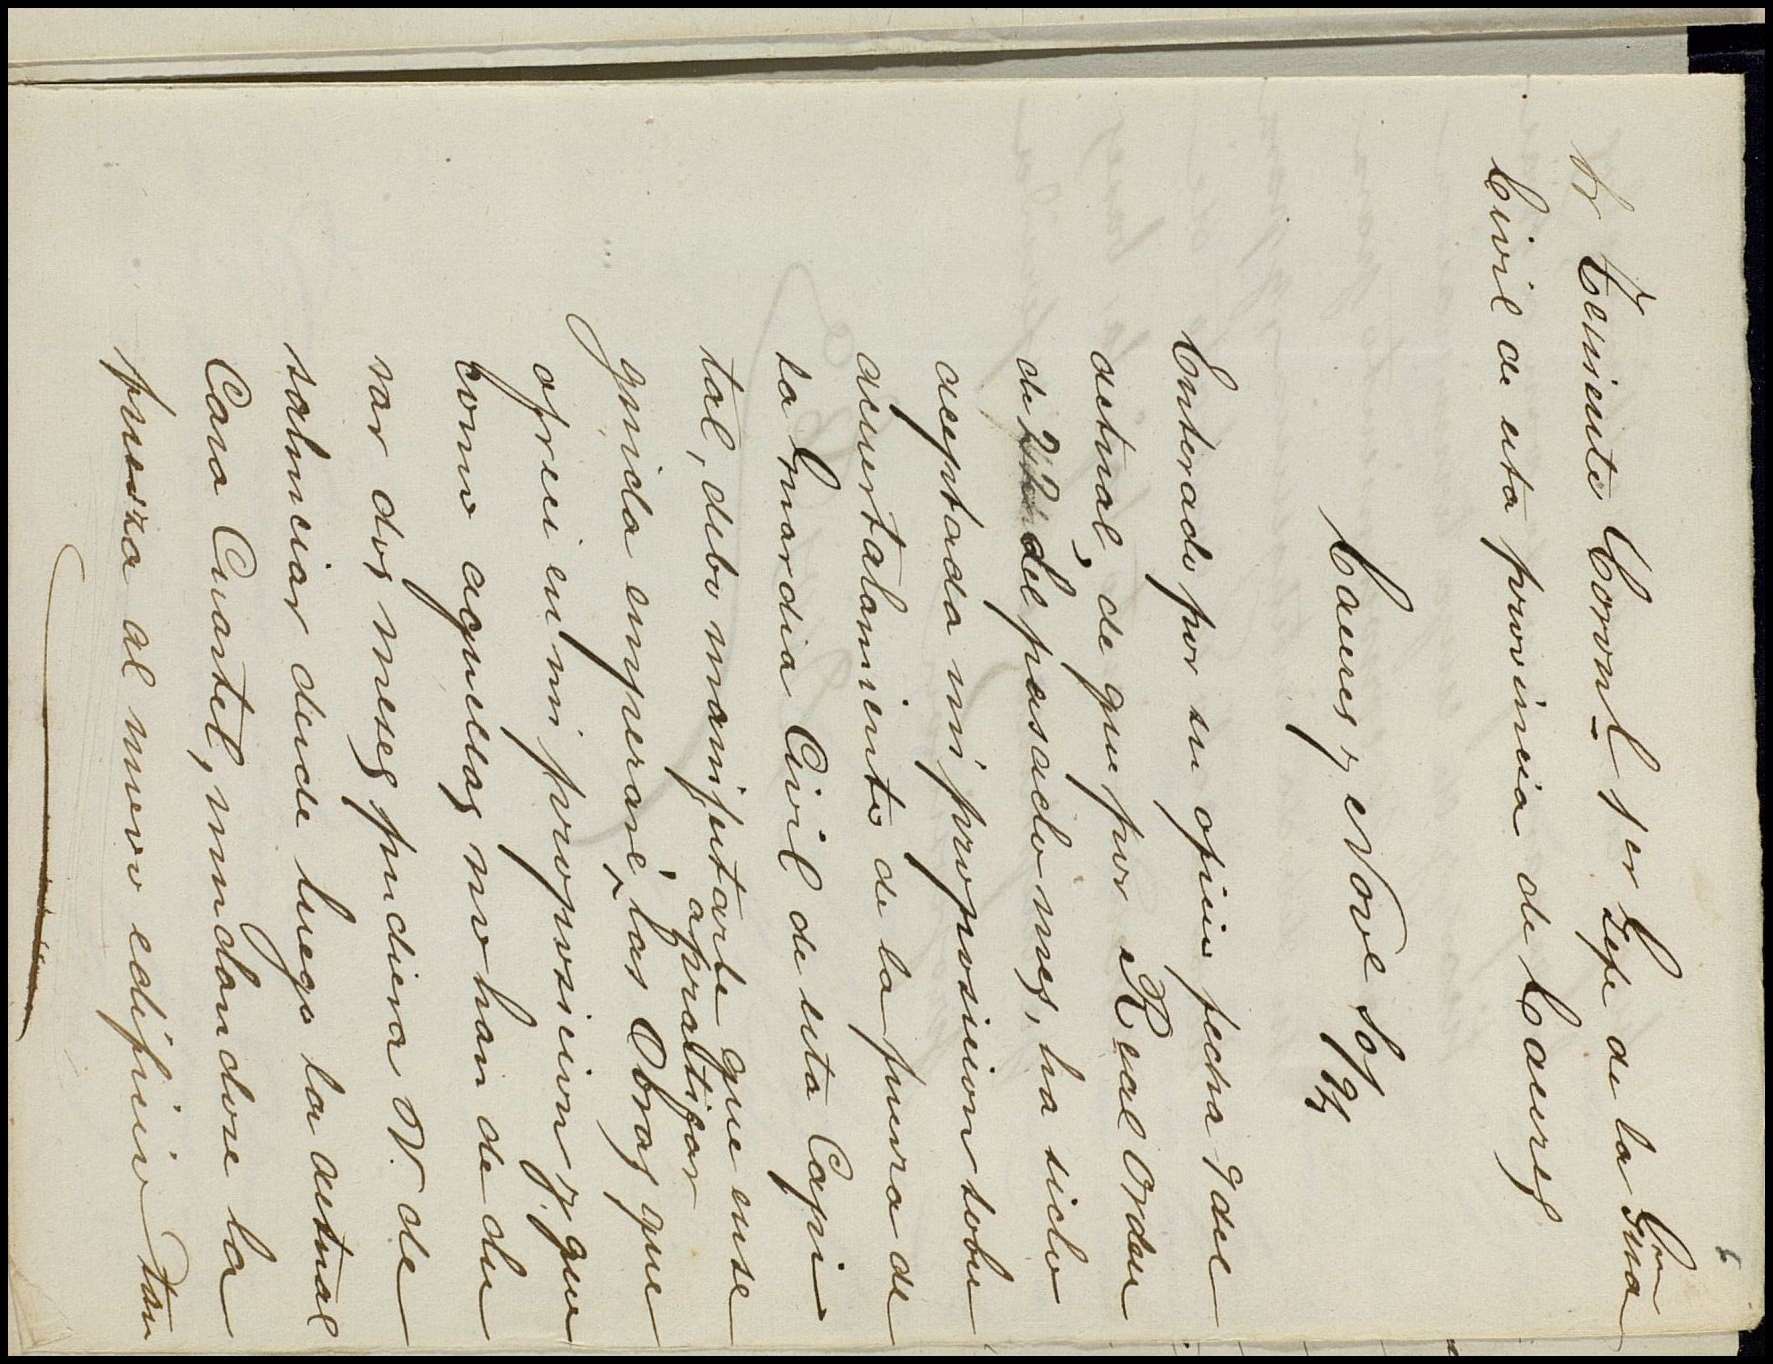 Sr Teniente Coronl 1er Gefe de la Gua
Civil de esta provincia de Caceres
Caceres y Nove 10/94
Enterado por su oficio fecha 9 del
actual, de que por Real Orden
de 22 del pasado mes, ha sido
aceptada mi proposicion sobre
acuertalamiento de la fuerza de
la Guardia Civil de esta Capi
tal, debo manifestarle que ense
guida emperaré, a practicar las Obras que
ofreci en mi proposicion y que
como aquellas no han de du
rar dos meses pudiera V. de
sahuciar desde luego la actual
Casa Cuartel, mudandose la
fuerza al nuevo edificio tan